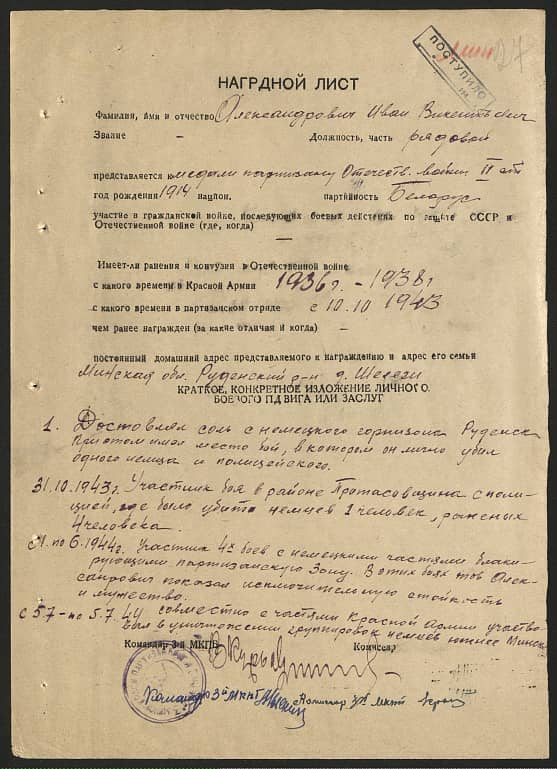 ПОСТУПИЛО
27
НАГРДНОЙ ЛИСТ
Фамилия, имя и отчество Александрович Иван Викентьевич
Звание – Должность, часть рядовой
представляется к медали партизану Отечеств. войны II ст
год рождения 1914 национ. партийность Белорус
участие в гражданской войне, последующих боевых действиях по защите СССР и
Отечественной войне (где, когда) –
Имеет-ли ранения и контузии в Отечественной войне
с какого времени в Красной Армии 1936г. – 1938г
с какого времени в партизанском отряде с 10.10 1943
чем ранее награжден (за какие отличия и когда) –
постоянный домашний адрес представляемого к награждению и адрес его семьи
Минская обл. Руденский р-н д.
КРАТКОЕ, КОНКРЕТНОЕ ИЗЛОЖЕНИЕ ЛИЧНОГО
БОЕВОГО ПДВИГА ИЛИ ЗАСЛУГ
1. Доставлял соль с немецкого горнизона Руденск
При этом имел место бой, в котором он лично убил
одного немца и полицейского.
31.10.1943г. Участник боя в районе Протасовщина с поли-
цией, где было убито немцев 1 человек, раненых
4 человека.
с 1. по 6.1944г. Участник 4х боев с немецкими частями блоки-
рующими партизанскую зону. В этих боях тов Алек-
сандрович показал исключительную стойкость
и мужество.
с 5.7 – по 5.7.44 совместно с частями Красной Армии участво-
вал в уничтожении группировок немцев южнее Минска
Командир 3-й МКПБ Комиссар
Командир 3й МКПБ Комиссар 3й МКПБ